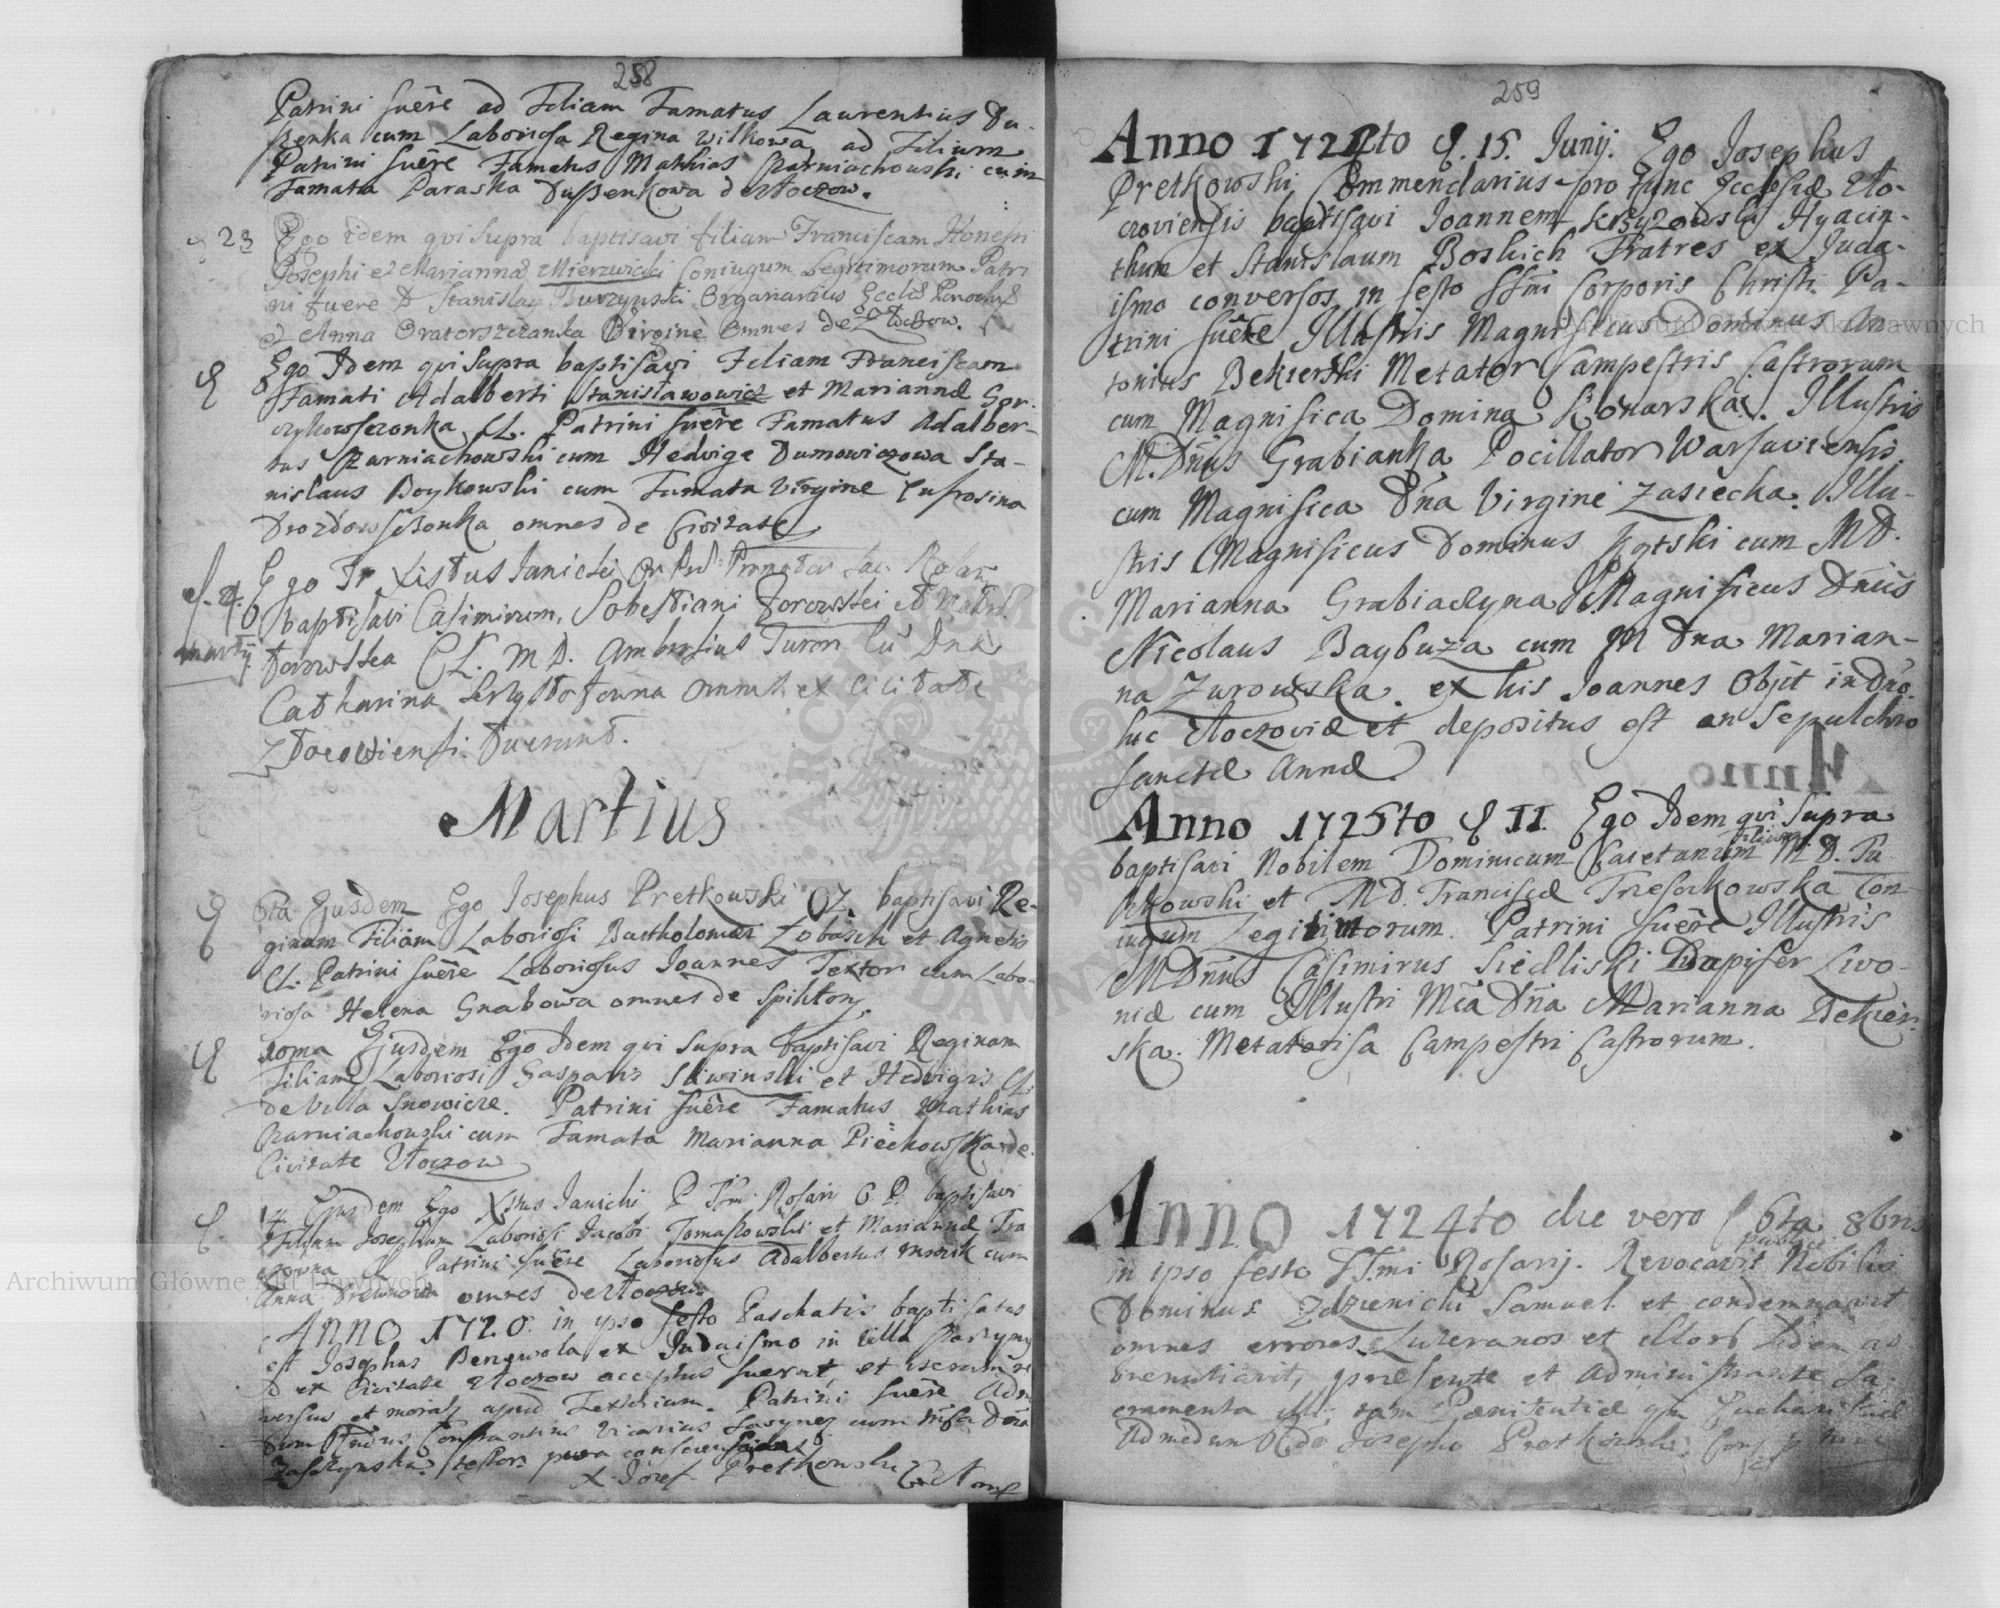 258
Patrini fuēre ad Filiam Famatus Laurentius Du-
szenka cum Laboriosa Regina Wilkowa, ad Filium
Patrini fuēre Famatus Mathias Czarniachowski cum
Famata Paraska Duszenkowa de Złoczow.
d 23 Ego idem qui supra baptisavi filiam Franciscam Honesti
Josephi et Mariannæ Mierzwicki Coniugum Legitimorum Patri
ni fuere D Stanislaus Burzynski Organarius Eccliæ Parochiæ
et Anna Oratorszczanka Virgine omnes de Złoczow.
d Ego Idem qui supra baptisavi Filiam Franciscam
Famati Adalberti Stanisławowicz et Mariannæ Gor-
czykowsczonka CL. Patrini fuēre Famatus Adalber-
tus Czarniachowski cum Hedvige Dumowiczowa Sta-
nislaus Boykowski cum Famata Virgine Eufrosina
Drozdowsczonka omnes de Civitate
d. 4. Martij Ego Fr Xistus Janicki Promotor Sac. Rosar
baptisavi Casimirum, Sobestiani Torowski et
Torowska CL. M. D. Ambrosius Turon cū Dna
Catharina Krzysztofowna omnes ex civitate
Złoczowiensi fuerunt.
Martius
d 6ta Ejusdem Ego Josephus Pretkowski CZ. baptisavi Re-
ginam Filiam Laboriosi Bartholomæi Zobasch et Agnetis
CL. Patrini fuēre Laboriosus Joannes Textor cum Labo-
riosa Helena Grabowa omnes de Spihlosy.
d 10ma Ejusdem Ego Idem qui supra baptisavi Reginam
Filiam Laboriosi Gasparis Sliwinski et Hedvigis CL.
de Villa Snowicze. Patrini fuēre Famatus Mathias
Czarniachowski cum Famata Marianna Piēchowska de
Civitate Złoczow
d. 14 Ejusdem Ego Xstus Janicki P Ssmi Rosarii O. P. baptisavi
Filium Josephum Laboriosi Jacobi Tomaszowski et Mariannæ Tra
czowna Patrini fuēre Laboriosus Adalbertus Mroik cum
Anna Drewnowa omnes de Złoczow.
ANNO 1720. in ipso festo Paschatis baptisatus
est Josephus Benewola ex Judaismo in Villa
ex Civitate Złoczow acceptus fuerat, et
versus et moratus apud Patrini fuēre Adm
dum Rndus Constantius Vicarius cum Dna
Zaszczynska. testor pura conscientia
X. Jozef Pretkowski
259
Anno 1724to d. 15. Junij. Ego Josephus
Pretkowski Commendarius pro tunc Ecclesiæ Zło-
czoviensis baptisavi Joannem Krzyzowski Hyacin-
thum et Stanislaum Boskich Fratres ex Juda-
ismo conversos in festo SSmi Corporis Christi. Pa-
trini fuēre Illustris Magnificus Dominus An
tonius Bekierski Metator Campestris Castrorum
cum Magnifica Domina Konarska. Illustris
M. Dnūs Grabianka Pocillator Warsaviensis
cum Magnifica Dña Virgine Zasiecka. Illu-
stris Magnificus Dominus Kątski cum M D.
Marianna Grabiaczyna Magnificus Dnūs
Nicolaus Baybuza cum M Dna Marian-
na Zurowska. ex his Joannes Objit in Dño.
huc Złoczoviæ et depositus est in Sepulchro
Sanctæ Annæ.
Anno 1725to d 11. Ego Idem qui supra
baptisavi Nobilem Dominicum Caietanum filium M. D. Tu
rkowski et M D. Franciscæ Trefsikowska Con
iugum Legitimorum. Patrini fuēre Illustris
M Dnūs Casimirus Siedliski Dapifer Livo-
niæ cum Illustri Mca Dña Marianna Bekier-
ska. Metatorisa Campestri Castrorum.
ANNO 1724to die vero 6ta 8bris
in ipso festo SSmi Rosarij. Revocavit publice Nobilis
Dominus Zdzienicki Samuel et condemnavit
omnes errores Luteranos et illorū fidem ab
renuntiavit, præsente et Administrante Sa-
cramenta illi, tam Pænitentiæ qm Eucharistiæ
Admodum Rdo Josepho Pretkowski
Archiwum Główne Akt Dawnych
Archiwum Główne Akt Dawnych